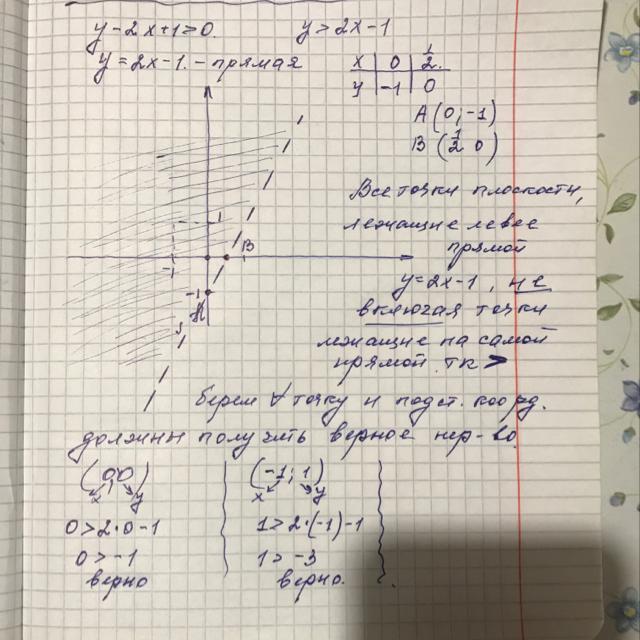 y-2x+1>0. y>2x-1
y=2x-1. - прямая
x 0 1/2.
y -1 0
A(0;-1)
B(1/2 0)
1
B
-1
-1
A
Все точки плоскости,
лежащие левее
прямой
y=2x-1, не
включая точки
лежащие на самой
прямой. тк >
берем ∀ точку и подст. коорд.
должны получить верное нер-во
(0,0) (-1; 1)
x y x y
0>2·0-1 1>2·(-1)-1
0>-1 1>-3
верно верно.